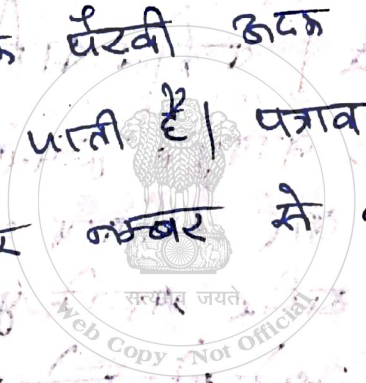 पैरवी अदम
पाती है। पत्राव
नम्बर से
सत्यमेव जयते
Web Copy - Not Official